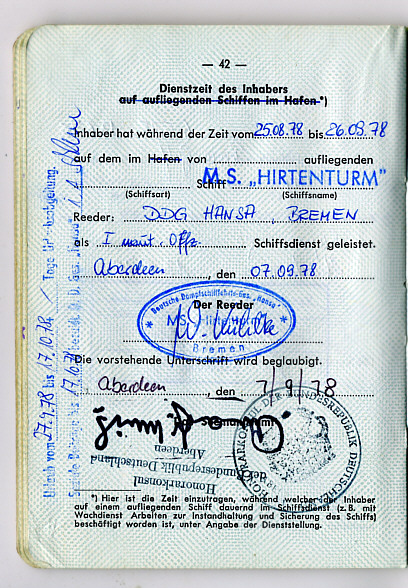 — 42 —
Dienstzeit des Inhabers
auf aufliegenden Schiffen im Hafen*)
Inhaber hat während der Zeit vom 25.08.78 bis 26.09.78
auf dem im Hafen von aufliegenden
Schiff M.S. „HIRTENTURM"
(Schiffsart) (Schiffsname)
Reeder: DDG HANSA, BREMEN
als I naut. Offz. Schiffsdienst geleistet.
Aberdeen, den 07.09.78
Der Reeder
Deutsche Dampfschifffahrts-Ges. „Hansa"
MS
Bremen
Die vorstehende Unterschrift wird beglaubigt.
Aberdeen, den 7/9/78
Seemannsamt
Honorarkonsul
der Bundesrepublik Deutschland
Aberdeen
HONORARKONSUL DER BUNDESREPUBLIK DEUTSCHLAND
*) Hier ist die Zeit einzutragen, während welcher der Inhaber
auf einem aufliegenden Schiff dauernd im Schiffsdienst (z. B. mit
Wachdienst Arbeiten zur Instandhaltung und Sicherung des Schiffs)
beschäftigt worden ist, unter Angabe der Dienststellung.
Urlaub vom 27.9.78 bis 17.10.78 / Tage für